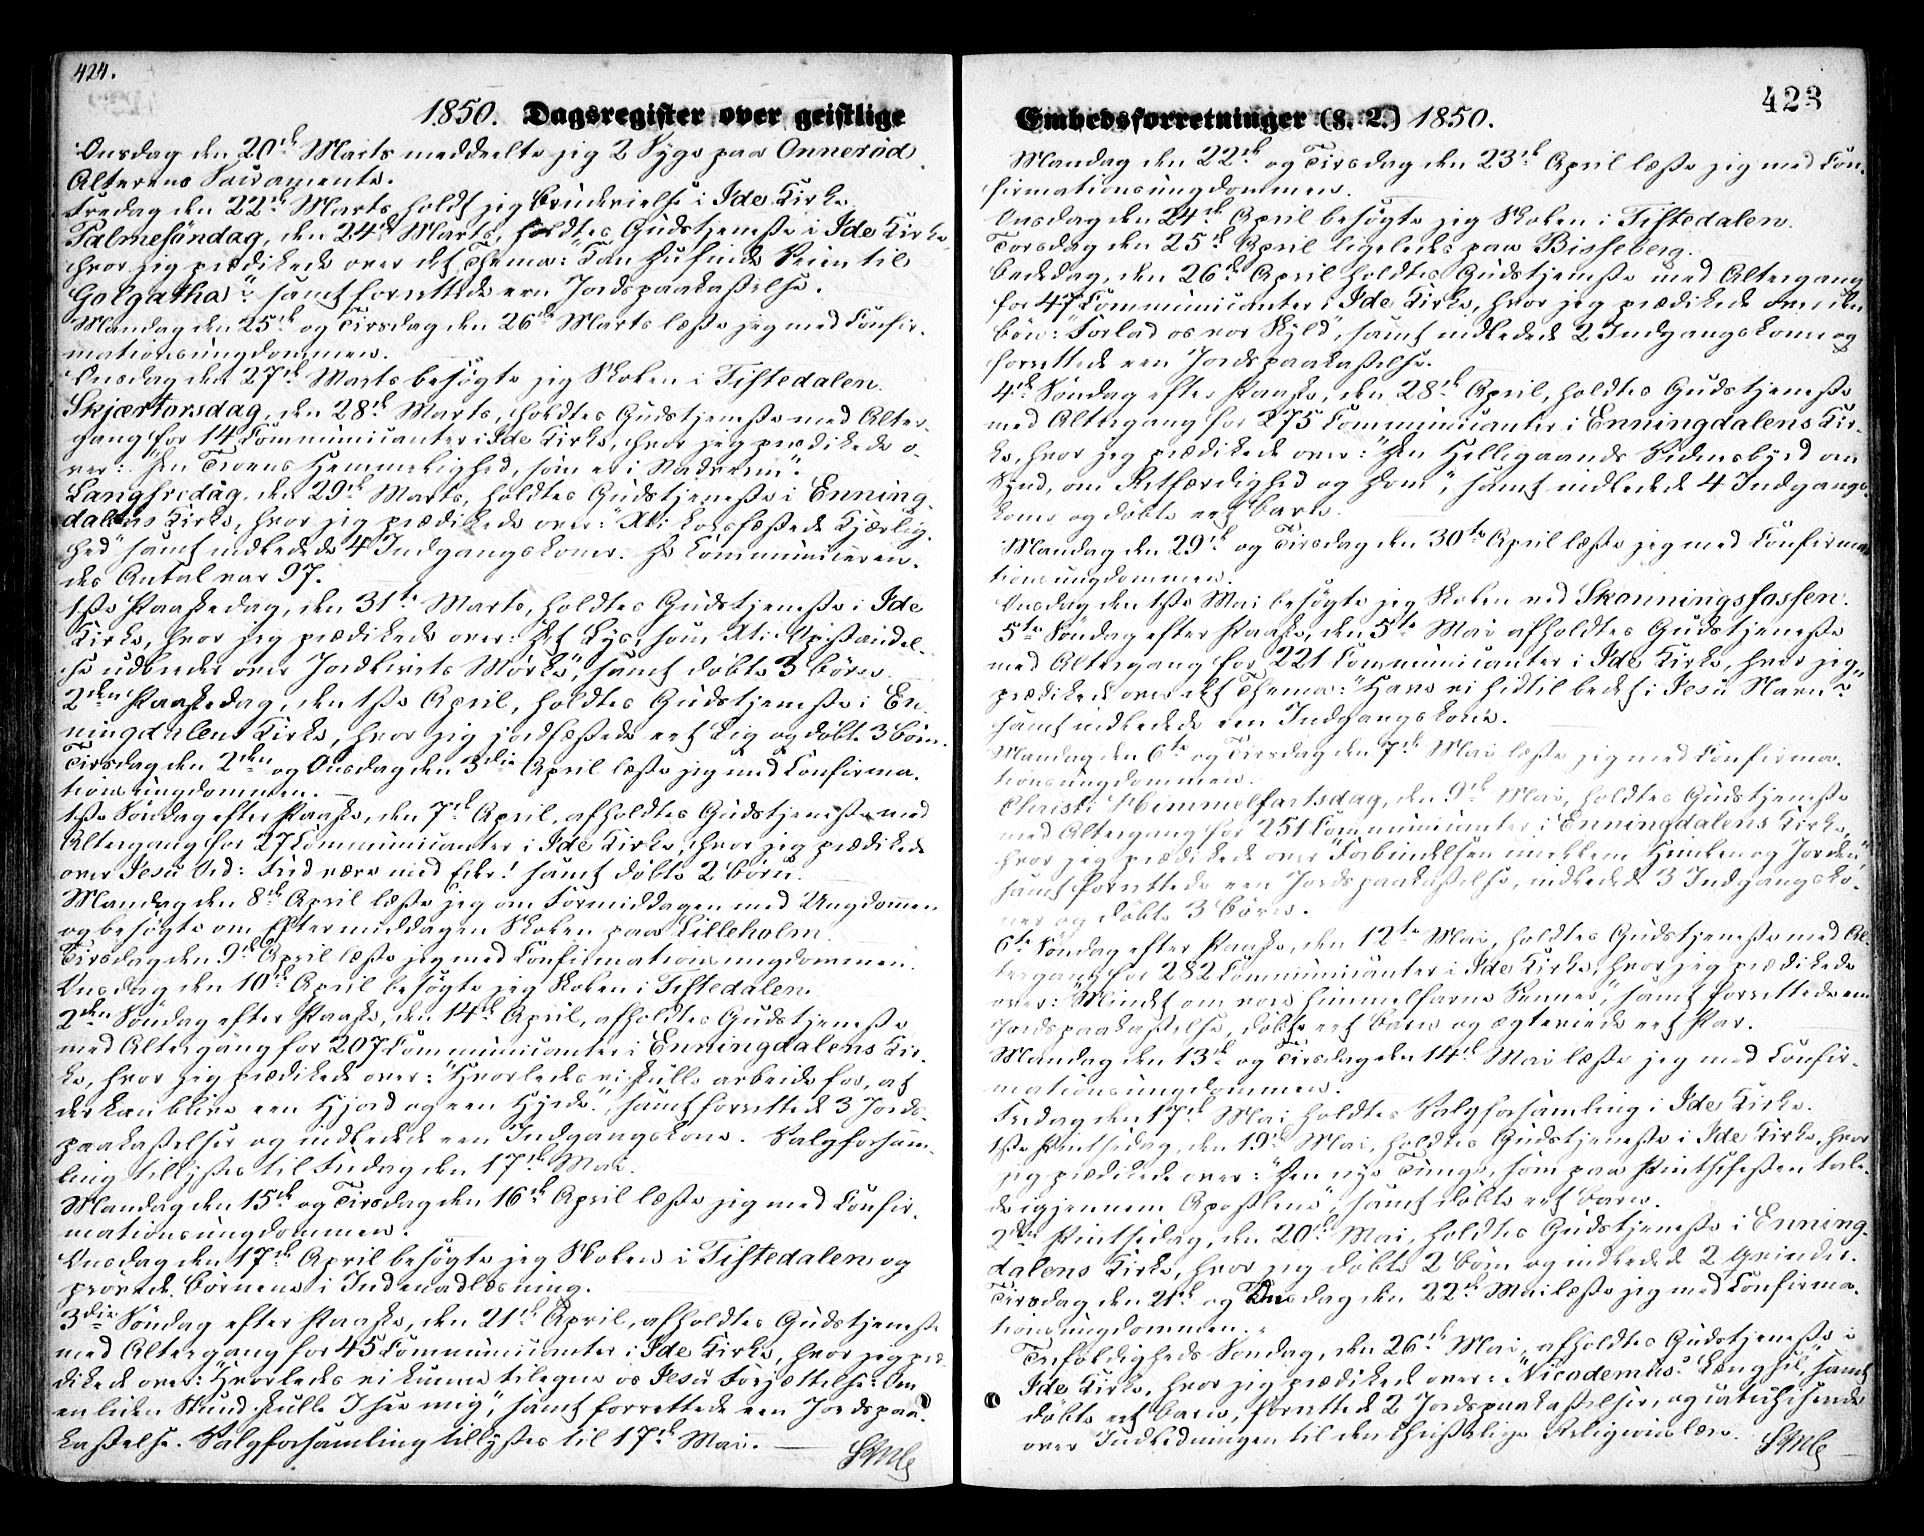 424.
1850. Dagsregister over geistlige
Onsdag den 20de Marts meddeelte jeg 2 Syge paa Onnerød
Alterens Sacramente.
Fredag den 22de Marts holdt jeg Brudevielse i Ide Kirke.
Palmesöndag, den 24de Marts, holdtes Gudstjeneste i Ide Kirke,
hvor jeg prædikede over det Thema: "Kan Du finde Veien til
Golgatha?" samt forrettede een Jordspaakastelse.
Mandag den 25de og Tirsdag den 26de Marts læste jeg med Confir-
mationsungdommen.
Onsdag den 27de Marts besøgte jeg Skolen i Tistedalen.
Skjærtorsdag, den 28de Marts, holdtes Gudstjeneste med Alter-
gang for 14 Communicanter i Ide Kirke, hvor jeg prædikede o-
ver: "Den Troens Hemmelighed, som er i Nadveren".
Langfredag, den 29de Marts, holdtes Gudstjeneste i Enning-
dalens Kirke, hvor jeg prædikede over: "Xti korsfæstede Kjærlig-
hed" samt indledede 4 Indgangskoner. De Communiceren-
des Antal var 97.
1ste Paaskedag, den 31te Marts, holdtes Gudstjeneste i Ide
Kirke, hvor jeg prædikede over: Det Lys, som Xti Opstandel-
se udbreder over Jordlivets Mørke", samt døbte 3 Børn.
2den Paaskedag, den 1ste April, holdtes Gudstjeneste i En-
ningdalens Kirke, hvor jeg jordfæstede eet Lig og døbte 3 Børn.
Tirsdag den 2den og Onsdag den 3die April læste jeg med Confirma-
tionsungdommen.
1ste Søndag efter Paaske, den 7de April, afholdtes Gudstjeneste med
Altergang for 27 Communicanter i Ide Kirke, hvor jeg prædikede
over Jesu Ord: Fred være med Eder! samt døbte 2 Börn.
Mandag den 8de April læste jeg om Formiddagen med Ungdommen
og besøgte om Eftermiddagen Skolen paa Lilleholm.
Tirsdag den 9de April læste jeg med Confirmationsungdommen.
Onsdag den 10de April besøgte jeg Skolen i Tistedalen.
2den Søndag efter Paaske, den 14de April, afholdtes Gudstjeneste
med Altergang for 207 Communicanter i Enningdalens Kir-
ke, hvor jeg prædikede over: "Hvorledes vi skulle arbeide for, at
der kan blive een Hjord og een Hyrde", samt forrettede 3 Jords-
paakastelser og indledede een Indgangskone. Valgforsam-
ling tillystes til Fredag den 17de Mai.
Mandag den 15de og Tirsdag den 16de April læste jeg med Confir-
mationsungdommen.
Onsdag den 17de April besøgte jeg Skolen i Tistedalen og
prøvede Børnene i Indenadlæsning.
3die Søndag efter Paaske, den 21de April, afholdtes Gudstjeneste
med Altergang for 45 Communicanter i Ide Kirke, hvor jeg præ-
dikede over: "Hvorledes vi kunne tilegne os Jesu Forjættelse: Om
en liden Stund skulle I see mig", samt forrettede een Jordspaa-
kastelse. Valgforsamling tillystes til 17de Mai.
423
Embedsforretninger (§. 2.) 1850.
Mandag den 22de og Tirsdag den 23de April læste jeg med Con-
firmationsungdommen.
Onsdag den 24de April besøgte jeg Skolen i Tistedalen.
Torsdag den 25de April ligeledes paa Bisseberg.
Bededag, den 26de April holdtes Gudstjeneste med Altergang
for 47 Communicanter i Ide Kirke, hvor jeg prædikede over den
Bøn: "Forlad os vor Skyld", samt indledede 2 Indgangskoner og
forrettede een Jordspaakastelse.
4de Søndag efter Paaske, den 28de April, holdtes Gudstjeneste
med Altergang for 275 Communicanter i Enningdalens Kir-
ke, hvor jeg prædikede over: "Den Helligaands Vidnesbyrd om
Synd, om Retfærdighed og Dom", samt indledede 4 Indgangs-
koner og døbte eet Barn.
Mandag den 29de og Tirsdag den 30te April læste jeg med Confirma-
tionsungdommen.
Onsdag den 1ste Mai besøgte jeg Skolen ved Skonningsfossen.
5te Søndag efter Paaske, den 5te Mai afholdtes Gudstjeneste
med Altergang for 221 Communicanter i Ide Kirke, hvor jeg
prædikede over det Thema: "Have vi hidtil bedet i Jesu Navn?"
samt indledede een Indgangskone.
Mandag den 6te og Tirsdag den 7de Mai læste jeg med Confirma-
tionsungdommen.
Christi Himmelfartsdag, den 9de Mai, holdtes Gudstjeneste
med Altergang for 251 Communicanter i Enningdalens Kirke,
hvor jeg prædikede over "Forbindelsen mellem Himlen og Jorden",
samt forrettede een Jordspaakastelse, indledede 3 Indgangsko-
ner og døbte 3 Börn.
6te Søndag efter Paaske, den 12te Mai, holdtes Gudstjeneste med Al-
tergang for 282 Communicanter i Ide Kirke, hvor jeg prædikede
over: "Mindet om vore himmelfarne Venner", samt forrettede een
Jordspaakastelse, døbte eet Barn og ægteviede eet Par.
Mandag den 13de og Tirsdag den 14de Mai læste jeg med Confir-
mationsungdommen.
Fredag den 17de Mai holdtes Valgforsamling i Ide Kirke.
1ste Pintsedag, den 19de Mai, holdtes Gudstjeneste i Ide Kirke, hvor
jeg prædikede over: "Den nye Tunge, som paa Pintsefesten tale-
de igjennem Apostlene", samt døbte eet Barn.
2den Pintsedag, den 20de Mai, holdtes Gudstjeneste i Enning-
dalens Kirke, hvor jeg døbte 2 Börn og indledede 2 Qvinder.
Tirsdag den 21de og Onsdag den 22de Mai læste jeg med Confirma-
tionsungdommen.
Trefoldigheds Søndag, den 26de Mai, afholdtes Gudstjeneste i
Ide Kirke, hvor jeg prædikede over: "Nicodemus' Længsel", samt
døbte eet Barn, forrettede 2 Jordspaakastelser, og catechiserede
over Indledningen til den christelige Religionslære.